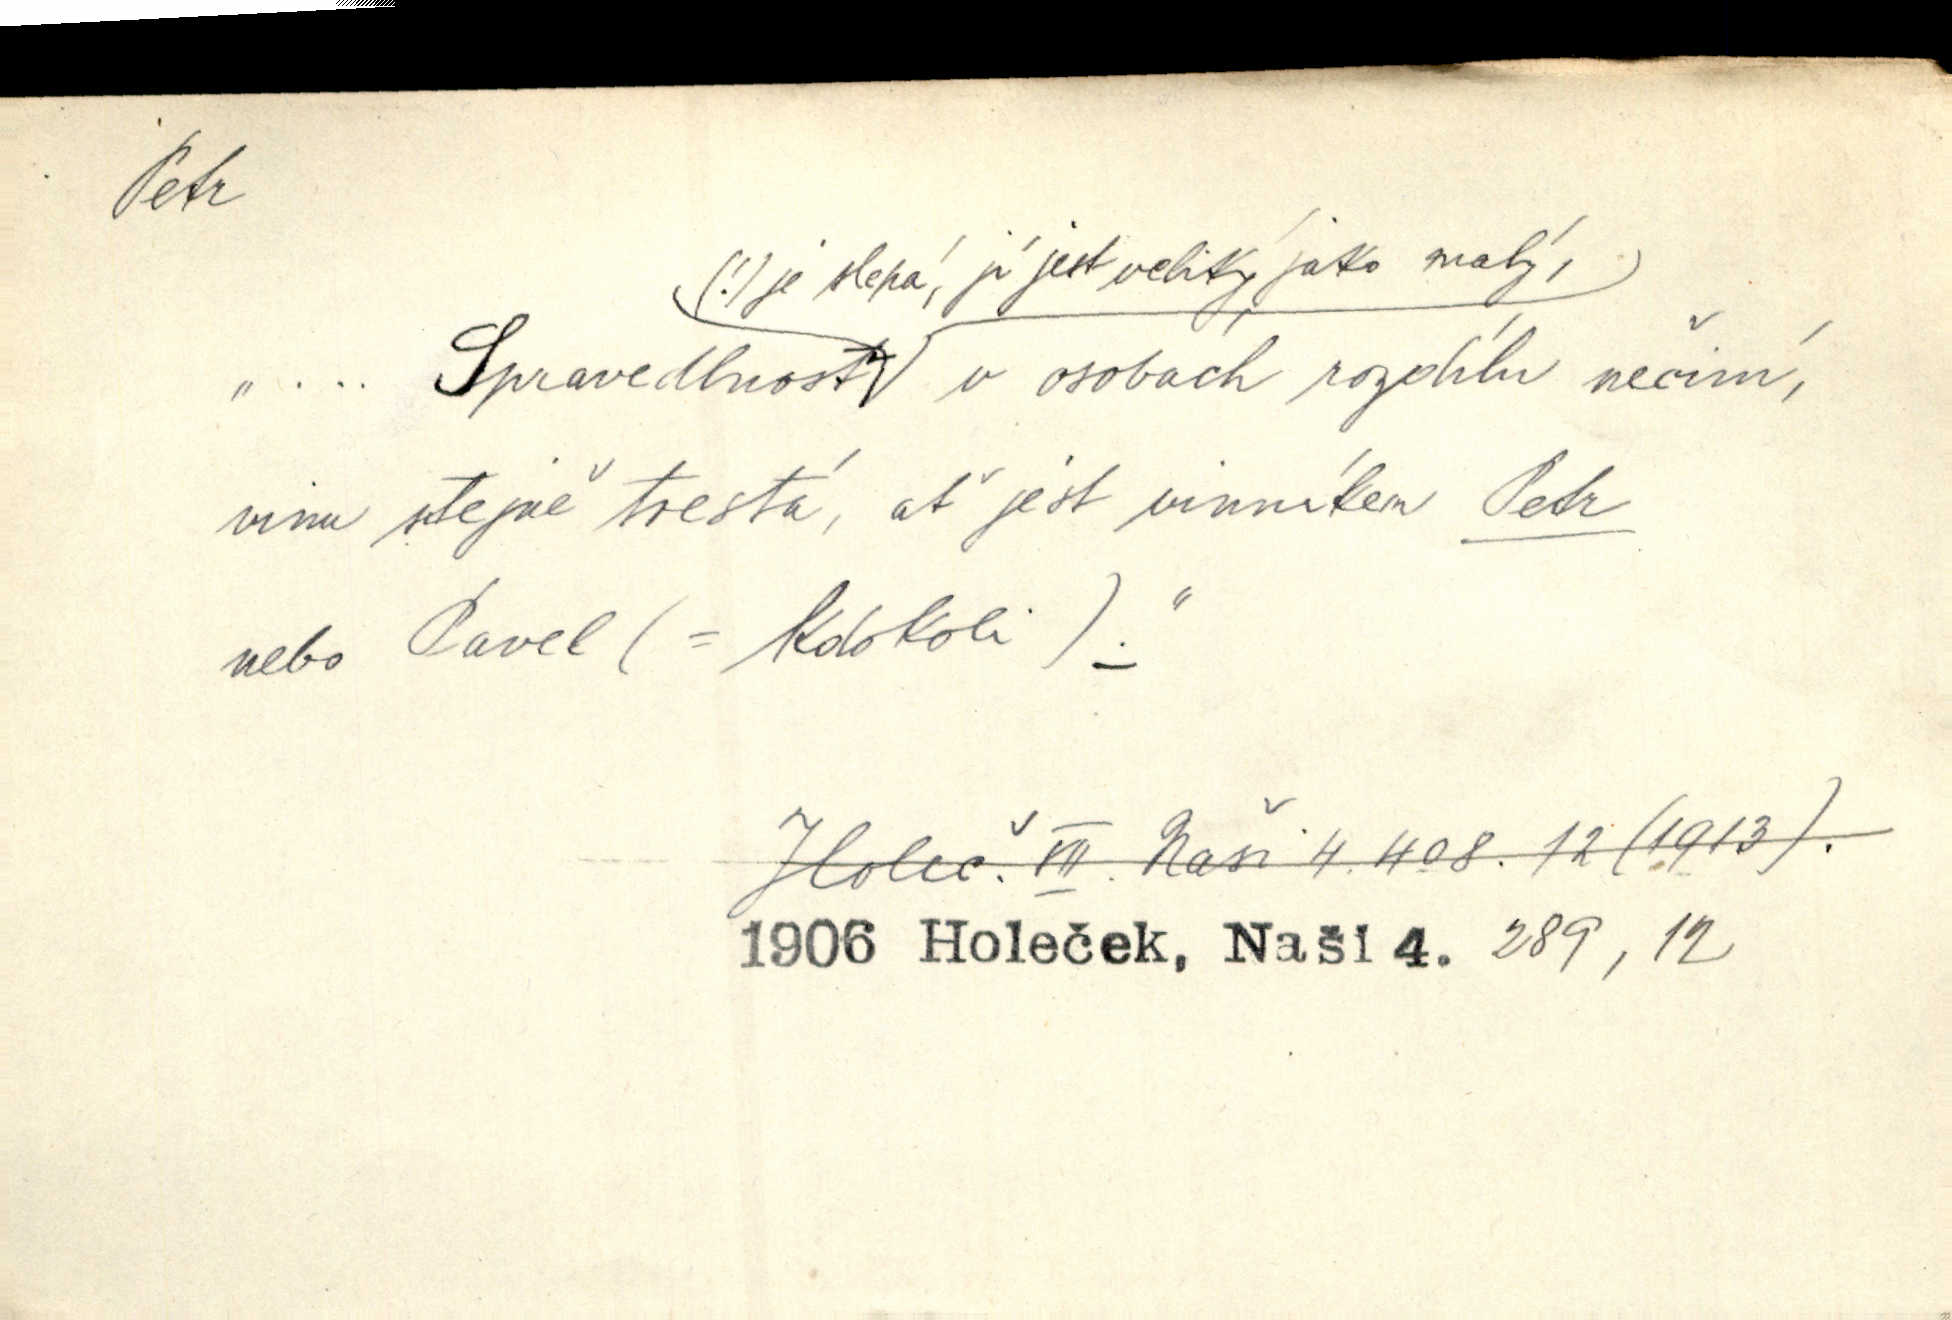 Petr
(!) je slepá, jí jest veliký jako malý,
„.... Spravedlnost v osobách rozdílu nečiní,
vinu stejně trestá, ať jest vinníkem Petr
nebo Pavel (= kdokoli)."
Holeč. VII. Naši 4. 408. 12 (1913).
1906 Holeček, Naši 4. 289, 12